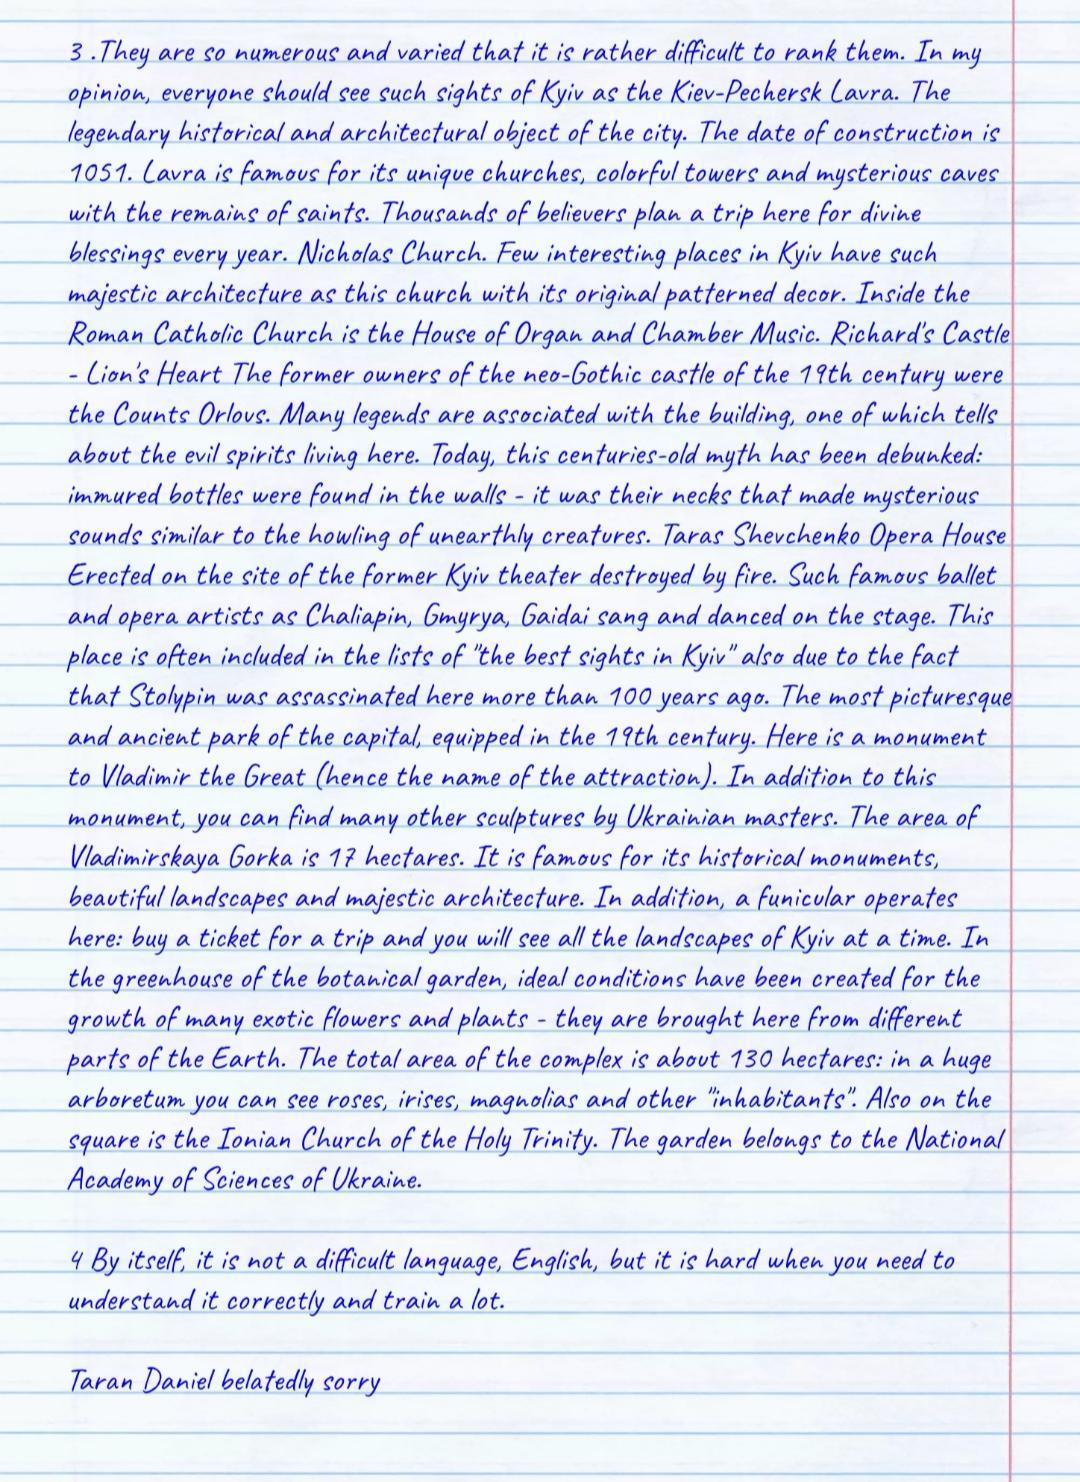 3 .They are so numerous and varied that it is rather difficult to rank them. In my
opinion, everyone should see such sights of Kyiv as the Kiev-Pechersk Lavra. The
legendary historical and architectural object of the city. The date of construction is
1051. Lavra is famous for its unique churches, colorful towers and mysterious caves
with the remains of saints. Thousands of believers plan a trip here for divine
blessings every year. Nicholas Church. Few interesting places in Kyiv have such
majestic architecture as this church with its original patterned decor. Inside the
Roman Catholic Church is the House of Organ and Chamber Music. Richard's Castle
- Lion's Heart The former owners of the neo-Gothic castle of the 19th century were
the Counts Orlovs. Many legends are associated with the building, one of which tells
about the evil spirits living here. Today, this centuries-old myth has been debunked:
immured bottles were found in the walls - it was their necks that made mysterious
sounds similar to the howling of unearthly creatures. Taras Shevchenko Opera House
Erected on the site of the former Kyiv theater destroyed by fire. Such famous ballet
and opera artists as Chaliapin, Gmyrya, Gaidai sang and danced on the stage. This
place is often included in the lists of "the best sights in Kyiv" also due to the fact
that Stolypin was assassinated here more than 100 years ago. The most picturesque
and ancient park of the capital, equipped in the 19th century. Here is a monument
to Vladimir the Great (hence the name of the attraction). In addition to this
monument, you can find many other sculptures by Ukrainian masters. The area of
Vladimirskaya Gorka is 17 hectares. It is famous for its historical monuments,
beautiful landscapes and majestic architecture. In addition, a funicular operates
here: buy a ticket for a trip and you will see all the landscapes of Kyiv at a time. In
the greenhouse of the botanical garden, ideal conditions have been created for the
growth of many exotic flowers and plants - they are brought here from different
parts of the Earth. The total area of the complex is about 130 hectares: in a huge
arboretum you can see roses, irises, magnolias and other "inhabitants". Also on the
square is the Ionian Church of the Holy Trinity. The garden belongs to the National
Academy of Sciences of Ukraine.
4 By itself, it is not a difficult language, English, but it is hard when you need to
understand it correctly and train a lot.
Taran Daniel belatedly sorry